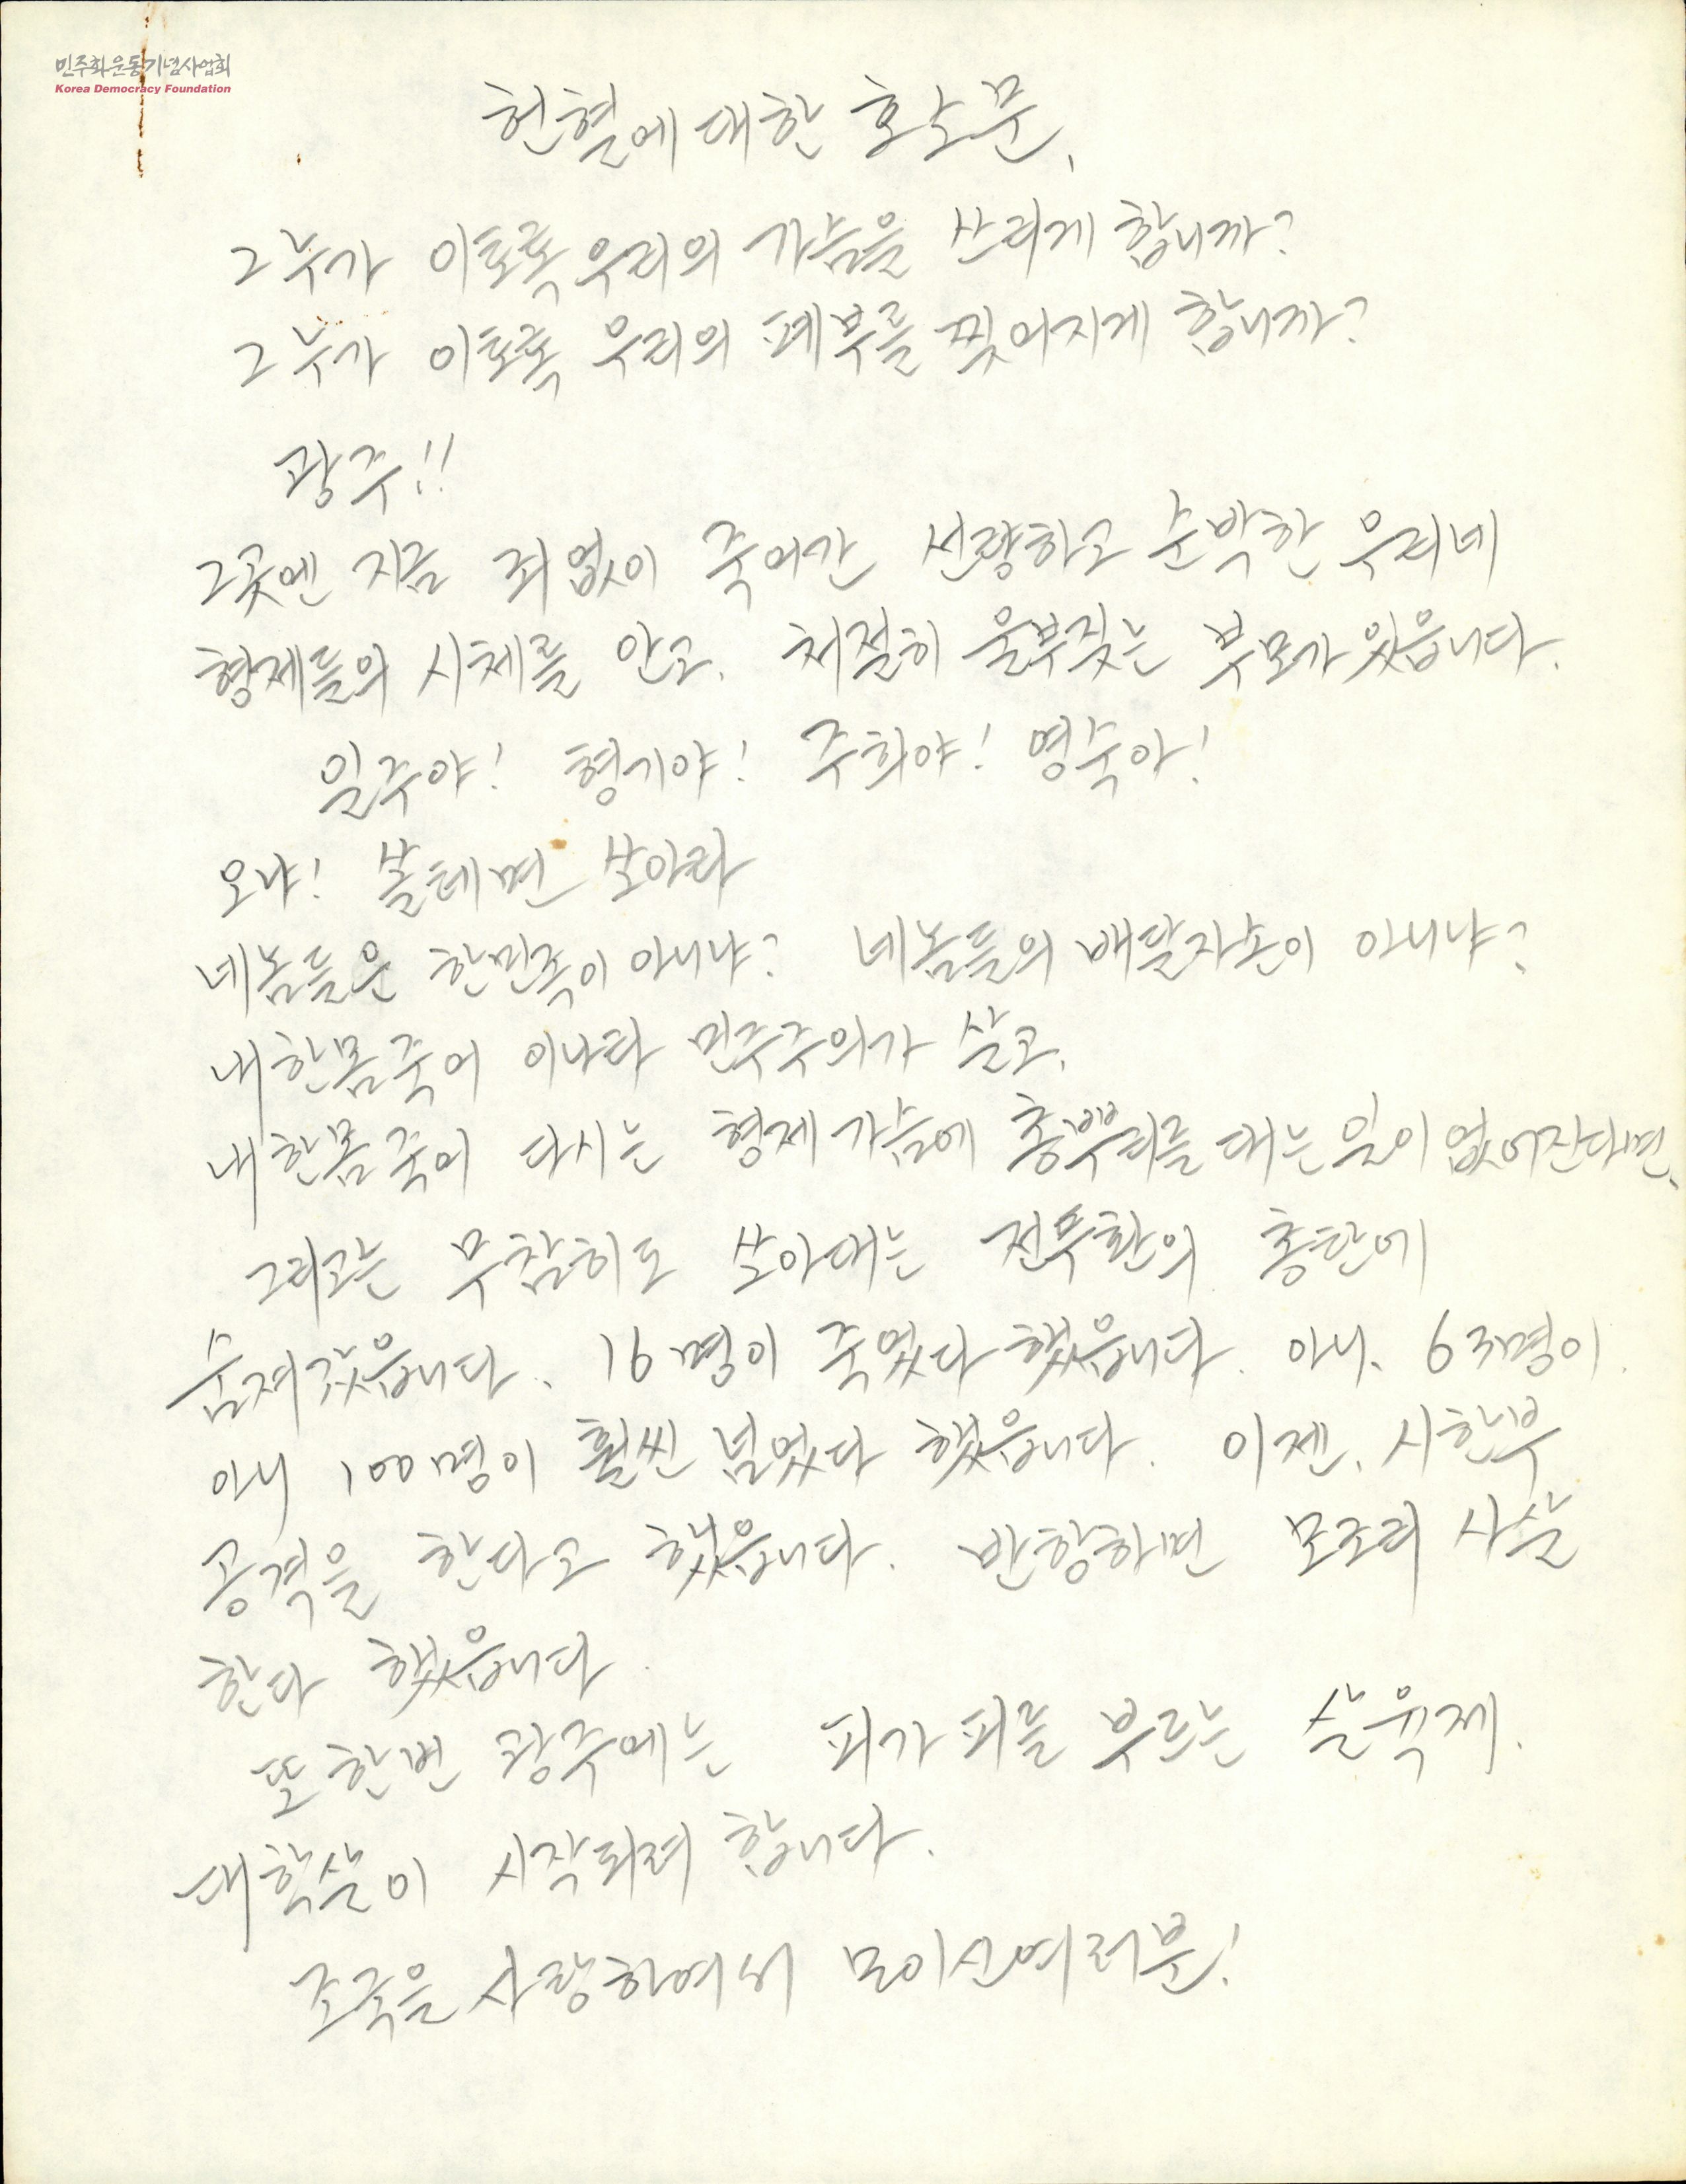 민주화운동기념사업회
Korea Democracy Foundation
헌혈에 대한 호소문,
그 누가 이토록 우리의 가슴을 쓰리게 합니까?
그 누가 이토록 우리의 폐부를 찢어지게 합니까?
광주!!
그곳엔 지금 죄없이 죽어간 선량하고 순박한 우리네
형제들의 시체를 안고, 처절히 울부짖는 부모가 있읍니다.
일주야! 형기야! 주희야! 영숙아!
오냐! 쏠테면 쏘아라
네놈들은 한민족이 아니냐? 네놈들의 배달자손이 아니냐?
내 한몸 죽어 이나라 민주주의가 살고,
내 한몸 죽어 다시는 형제 가슴에 총뿌리를 대는 일이 없어진다면,
그리고는 무참히도 쏘아대는 전두환의 총탄에
숨져갔읍니다. 16명이 죽었다 했읍니다. 아니, 63명이.
아니 100명이 훨씬 넘었다 했읍니다. 이젠, 시한부
공격을 한다고 했읍니다. 반항하면 모조리 사살
한다 했읍니다.
또 한번 광주에는 피가 피를 부르는 살육제.
대학살이 시작되려 합니다.
조국을 사랑하여서 모이신 여러분!